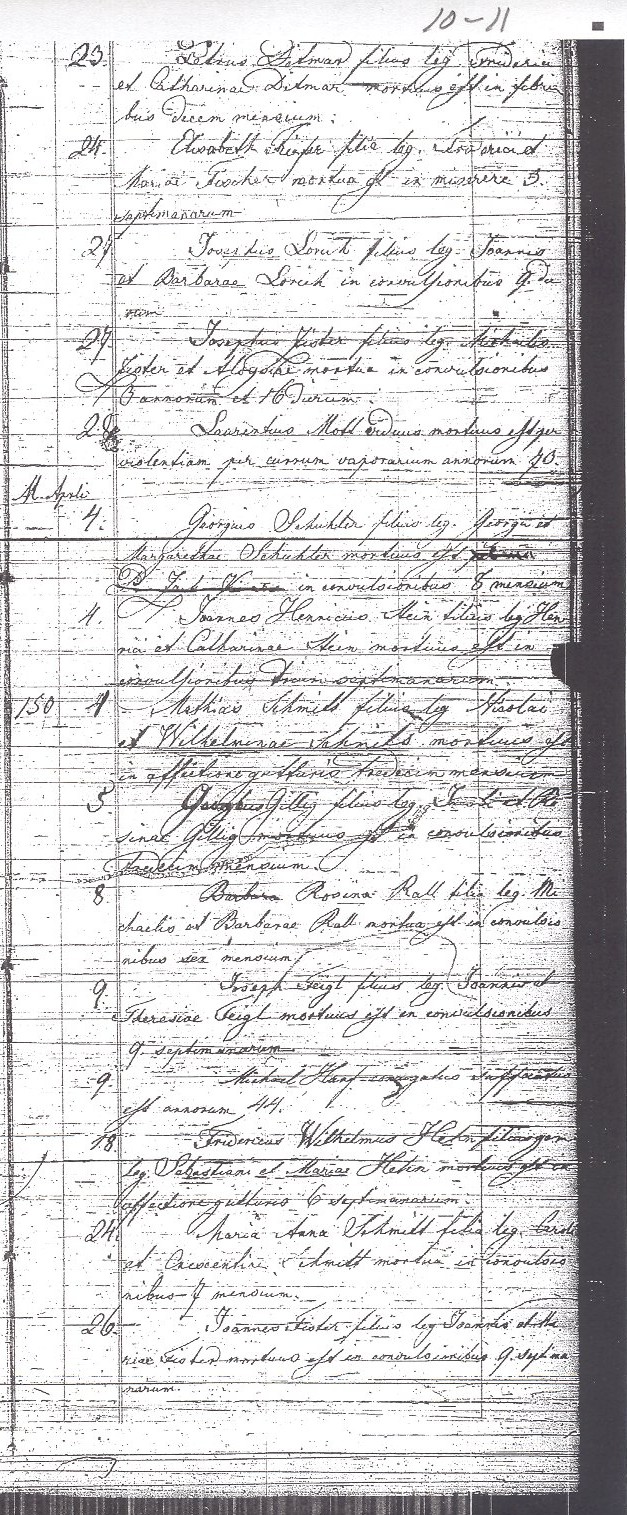 10-11
23. Petrus Ditmar filius leg. Friderici
et Catharinae Ditmar mortuus est in febri
bus decem mensium.
24. Elisabeth filia leg. et
Mariae Fischer mortua est in miserere 3.
septimanarum
27 Josephus Lorich filius leg. Joannis
et Barbarae Lorich in convulsionibus 9. die
rum
27. Josephus Fister filius leg. Michaelis
Fister et Aloysiae mortua in convulsionibus
3 annorum et 16 dierum.
28 Laurentius Moll viduus mortuus est per
violentiam per currum vaporarium annorum 70.
M. Aprli
4. Georgius Schuhler filius leg. Georgii et
Margarethae Schuhler mortuus est
in convulsionibus 8 mensium
4. Joannes Henricus Hein filius leg Hen
rici et Catharinae Hein mortuus est in
convulsionibus trium septimanarum
150 4 Mathias Schmitt filius leg Nicolai
et Wilhelminae Schmitt mortuus est
in affectione gutturis tredecim mensium
5 Georgius Gillig filius leg. et Ro
sinae Gillig mortuus est in convulsionibus
mensium.
8 Barbara Rosina Rall filia leg. Mi
chaelis et Barbarae Rall mortua est in convulsio
nibus sex mensium
9. Joseph Feigl filius leg Joannis et
Theresiae Feigl mortuus est in convulsionibus
9. septimanarum
9. Michael Harf conjugatus suffocatus
est annorum 44.
18. Fridericus Wilhelmus Hetin filius gem
leg. Sebastiani et Mariae Hetin mortuus est in
affectione gutturis 6 septimanarum.
24. Maria Anna Schmitt filia leg. Caroli
et Crescentiae Schmitt mortua in convulsio
nibus 7 mensium.
26. Joannes Fister filius leg Joannis et Ma
riae Fister mortuus est in convulsionibus 9. septima
narum.